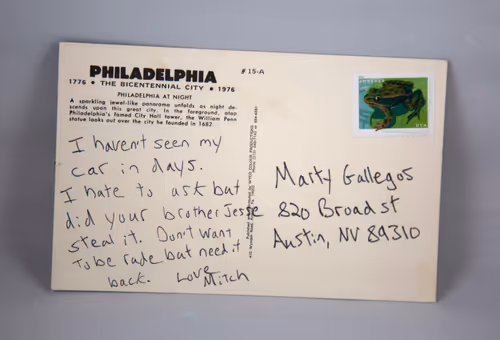 PHILADELPHIA
1776 • THE BICENTENNIAL CITY • 1976
PHILADELPHIA AT NIGHT
A sparkling jewel-like panorama unfolds as night de-
scends upon this great city. In the foreground, atop
Philadelphia's famed City Hall tower, the William Penn
statue looks out over the city he founded in 1682.
#15-A
I haven't seen my
car in days.
I hate to ask but
did your brother Jesse
steal it. Don't want
to be rude but need it
back. Love
Mitch
FOREVER
USA
Marty Gallegos
820 Broad st
Austin, NV 89310